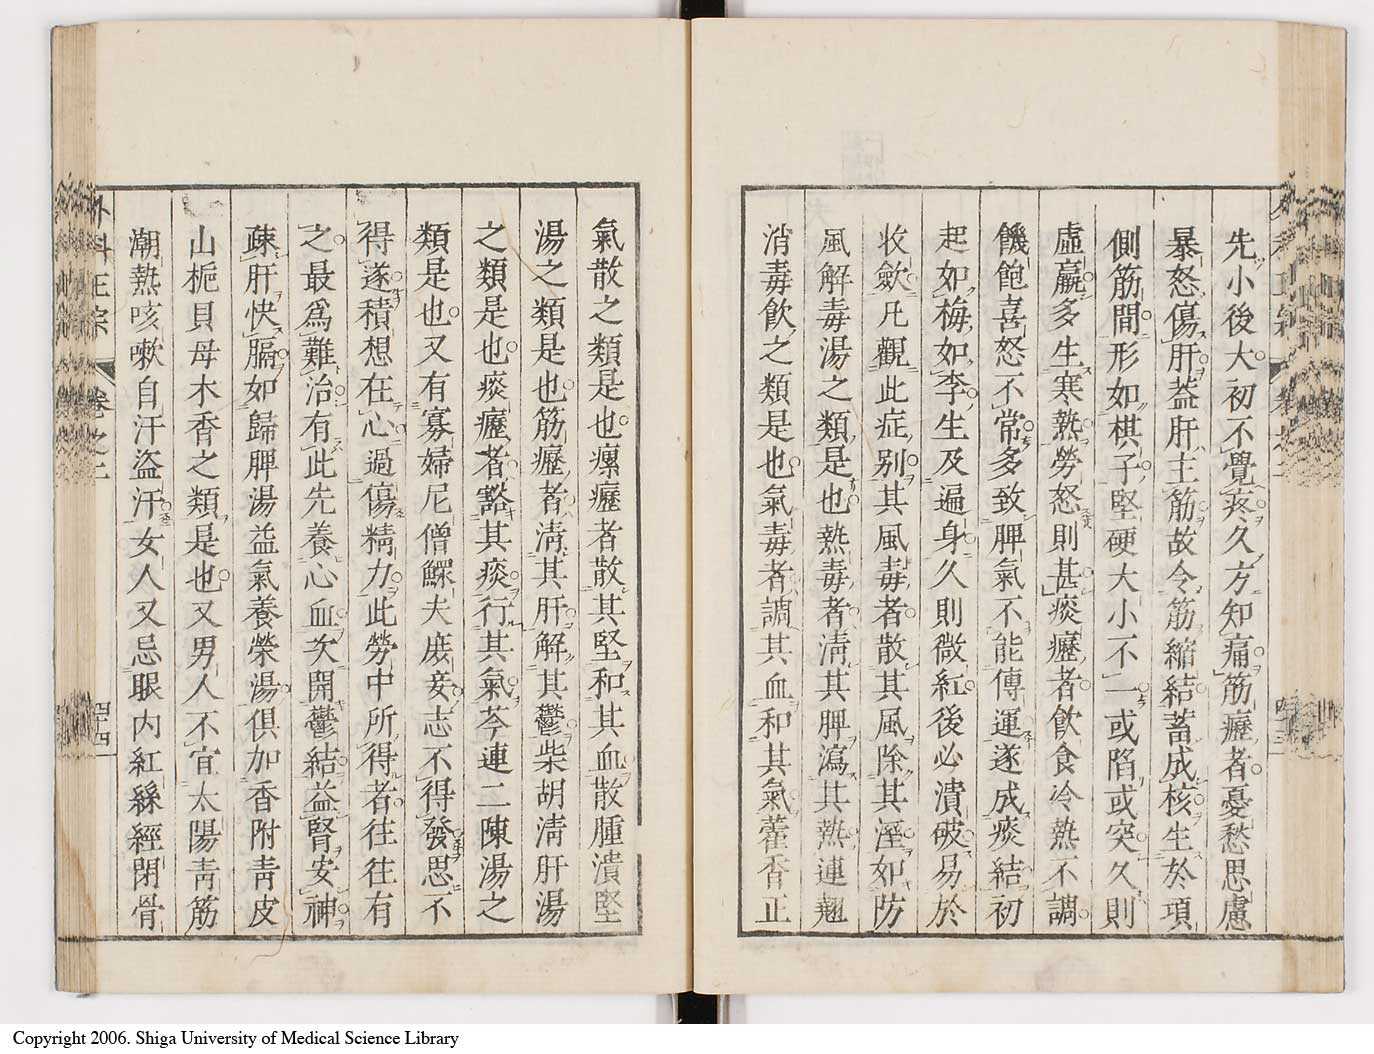 先小後大初不覺疼久方知痛筋癧者憂愁思慮
暴怒傷肝葢肝主筋故令筋縮結蓄成核生於項
側筋間形如棋子堅硬大小不一或陷或突久則
虛羸多生寒熱勞怒則甚痰癧者飲食冷熱不調
饑飽喜怒不常多致脾氣不能傳運遂成痰結初
起如梅如李生及遍身久則微紅後必潰破易於
收歛凡觀此症別其風毒者散其風除其溼如防
風解毒湯之類是也熱毒者淸其脾瀉其熱連翹
消毒飲之類是也氣毒者調其血和其氣藿香正
氣散之類是也瘰癧者散其堅和其血散腫潰堅
湯之類是也筋癧者淸其肝解其鬱柴胡淸肝湯
之類是也痰癧者豁其痰行其氣芩連二陳湯之
類是也又有寡婦尼僧鰥夫庻妾志不得發思不
得遂積想在心過傷精力此勞中所得者往往有
之最爲難治有此先養心血次開鬱結益腎安神
疎肝快膈如歸脾湯益氣養榮湯俱加香附靑皮
山梔貝母木香之類是也又男人不宜太陽靑筋
潮熱咳嗽自汗盜汗女人又忌眼內紅絲經閉骨
外科正宗 卷之二 四十四
Copyright 2006. Shiga University of Medical Science Library